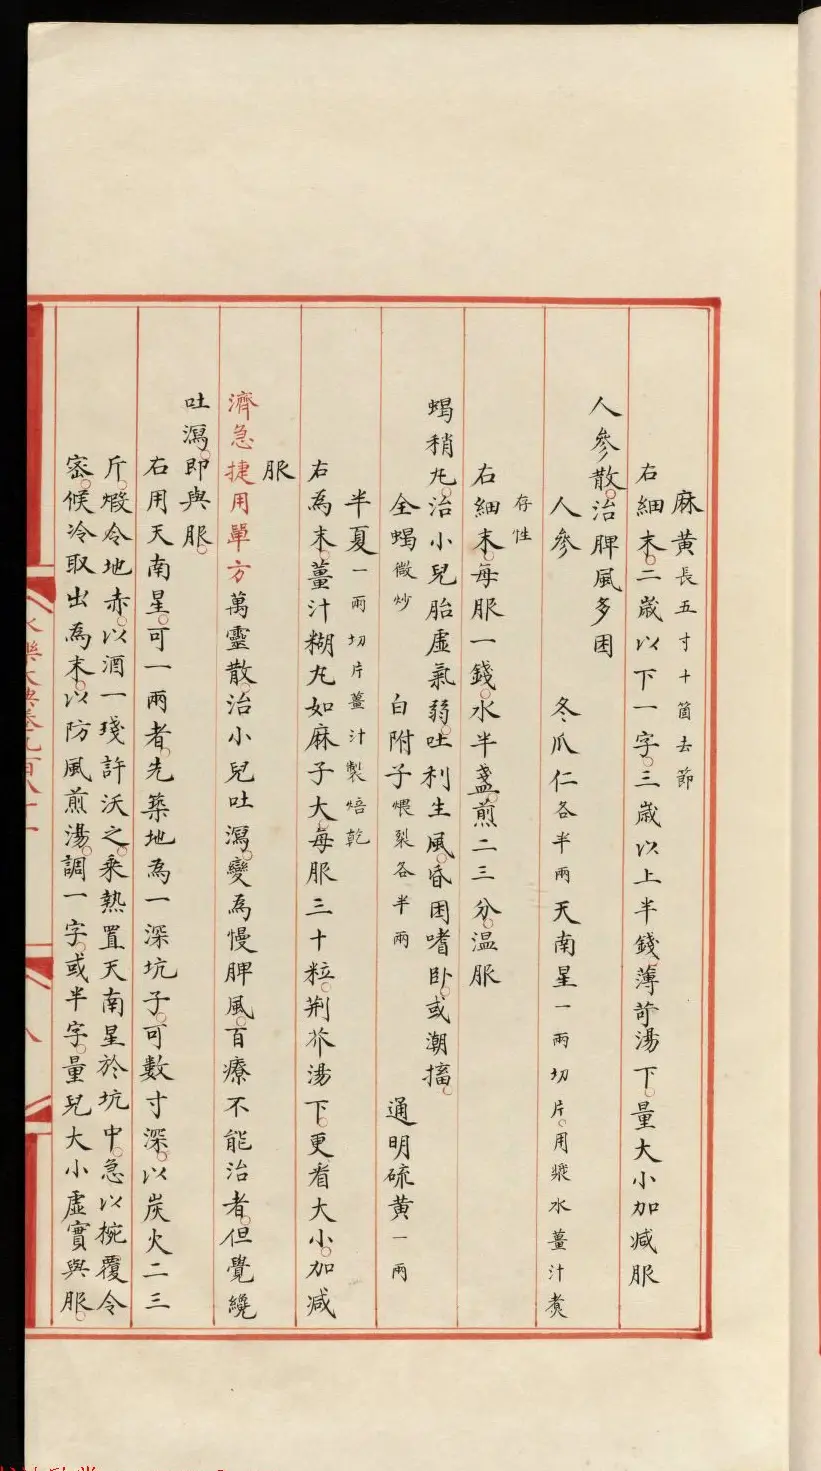 麻黄長五寸十箇去節
右細末。二歳以下一字。三歳以上半錢。薄荷湯下。量大小加減服
人參散。治脾風多困
人參　冬瓜仁各半兩　天南星一兩切片。用漿水薑汁煮
存性
右細末。每服一錢。水半盞。煎二三分。温服
蝎稍丸。治小兒胎虛氣弱。吐利生風。昏困嗜卧。或潮搐。
全蝎微炒　白附子煨裂各半兩　通明硫黄一兩
半夏一兩切片薑汁製焙乾
右為末。薑汁糊丸如麻子大。每服三十粒。荆芥湯下。更看大小。加減
服
濟急捷用單方萬靈散。治小兒吐瀉。變為慢脾風。百療不能治者。但覺纔
吐瀉。即與服。
右用天南星。可一兩者。先築地為一深坑子。可數寸深。以炭火二三
斤。煅令地赤。以酒一琖許沃之。乘熱置天南星於坑中。急以椀覆令
密。候冷取出為末。以防風煎湯。調一字。或半字。量兒大小虛實與服。
永樂大典卷九百八十一
八